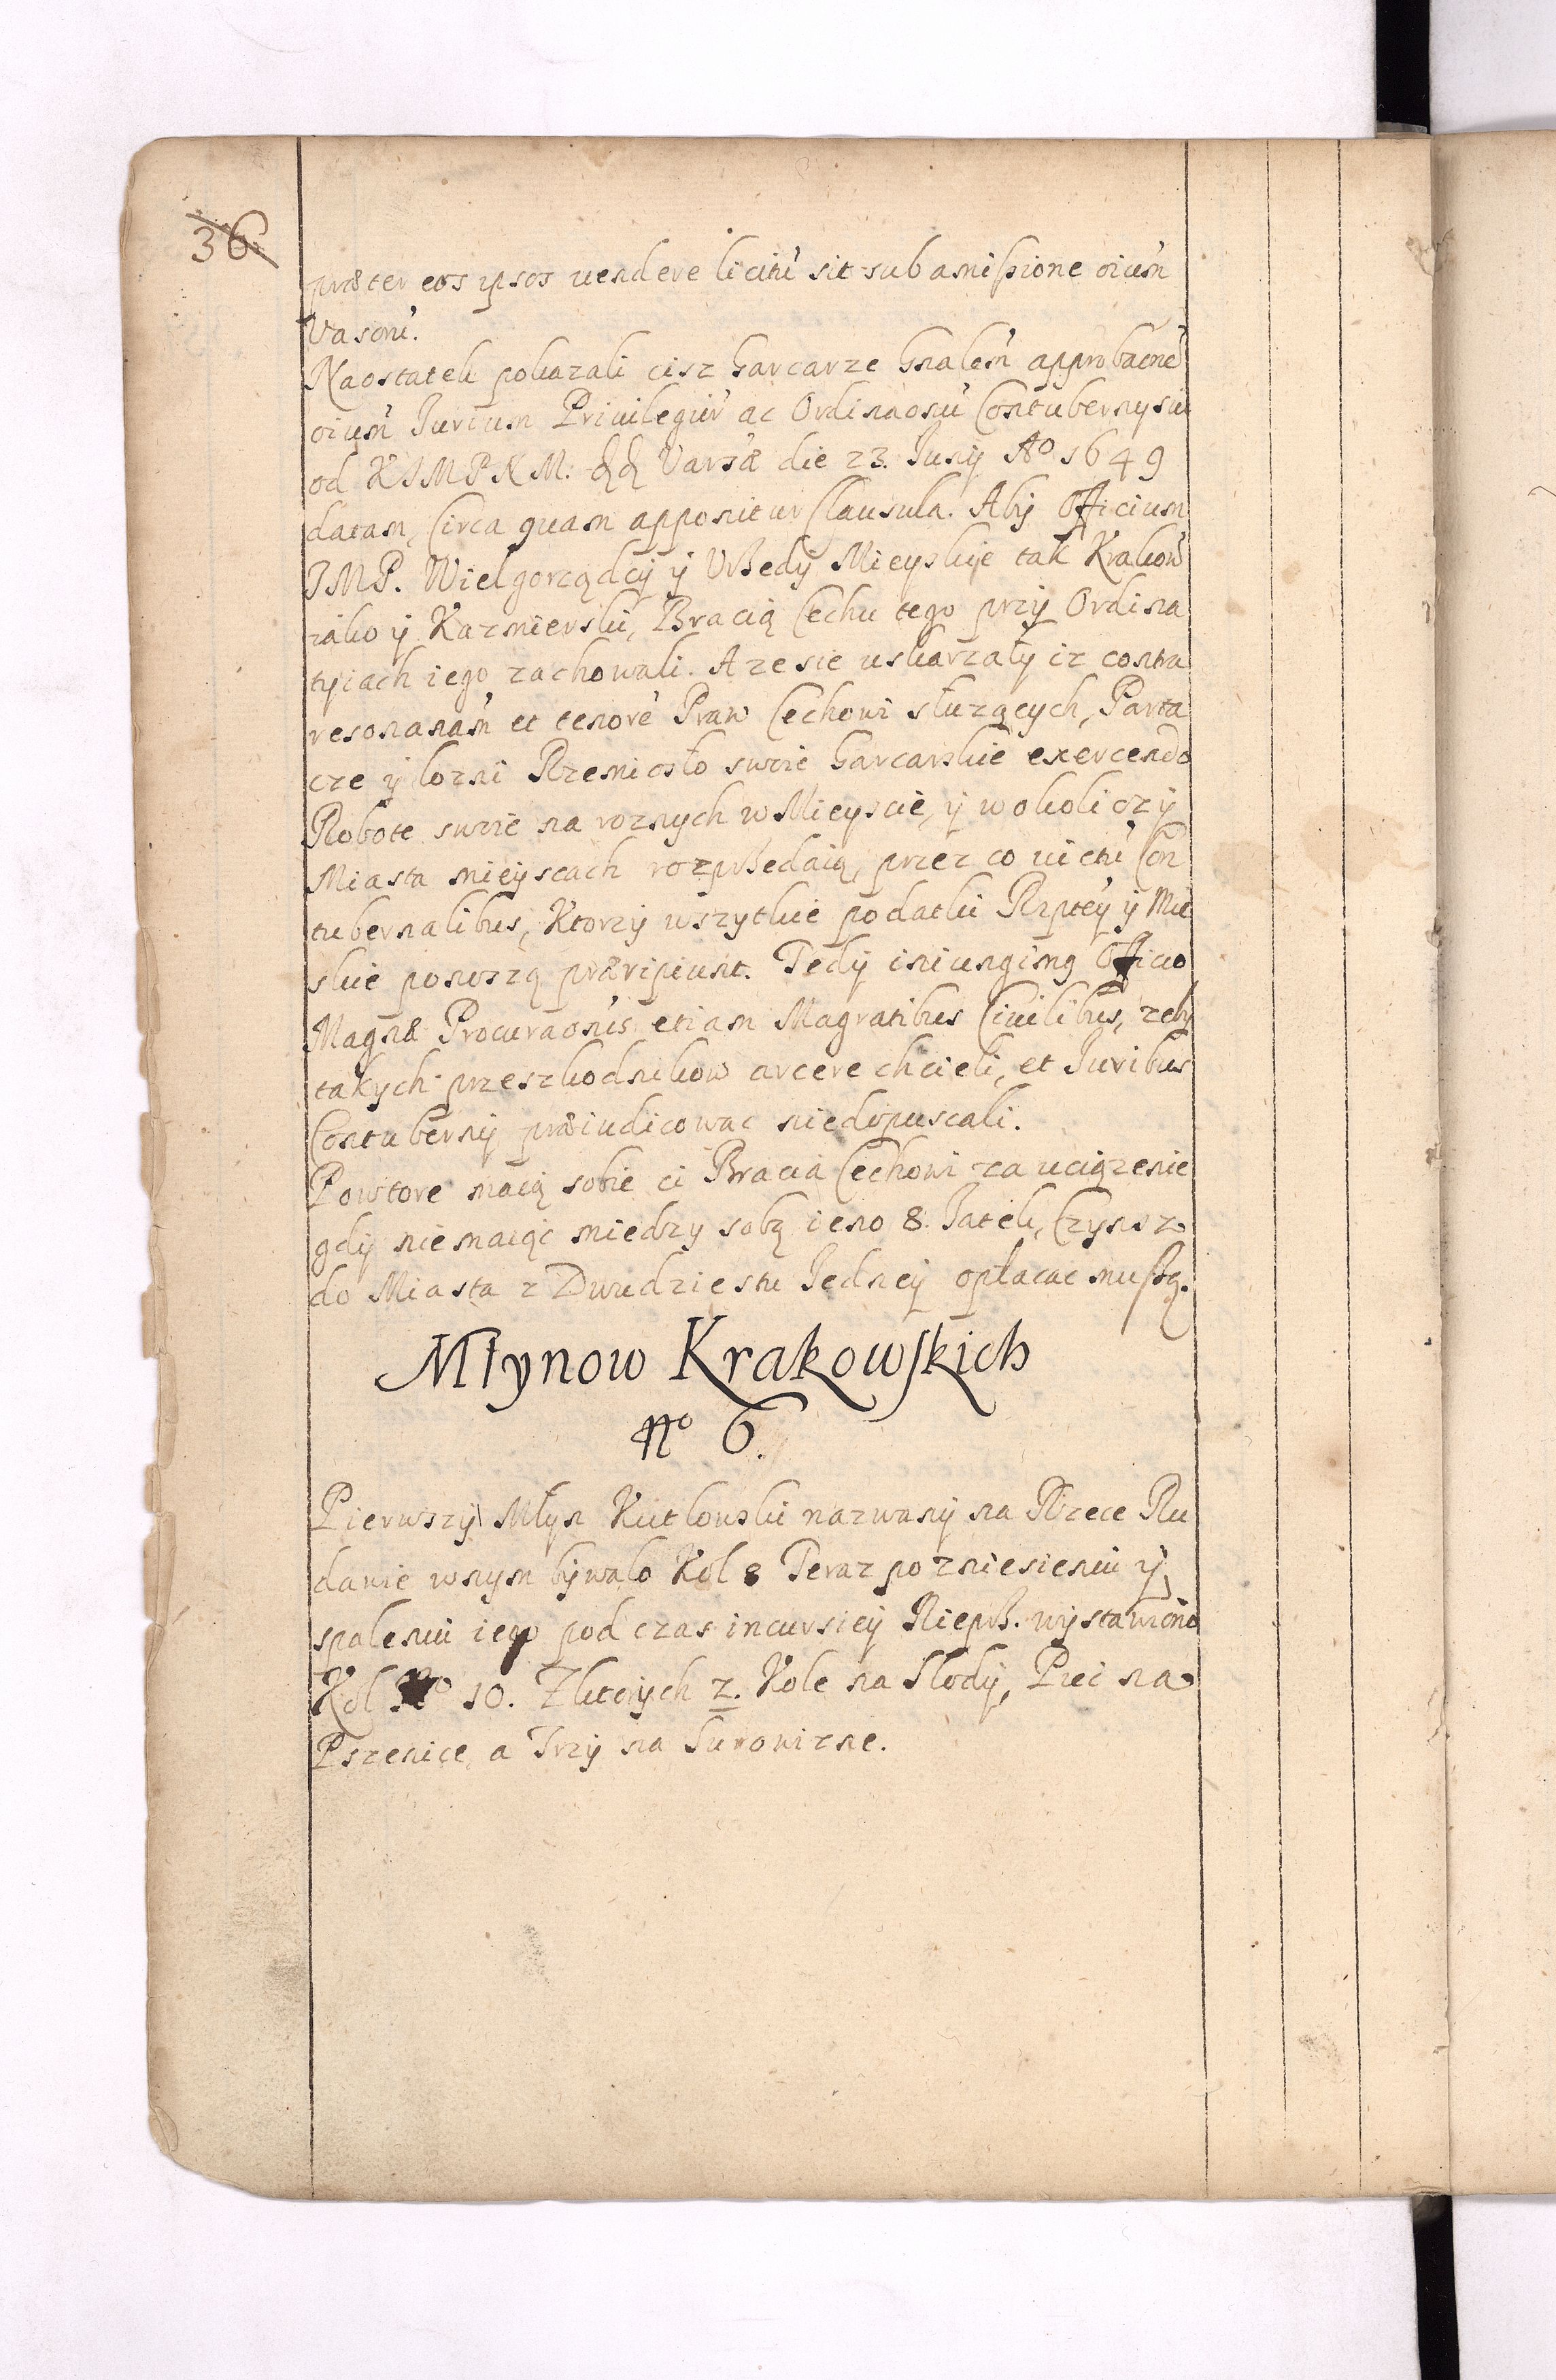 36.
præter eos ipsos uendere licitũ sit sub amißione oiũm
Vasorũ.
Naostatek pokazali cisz Garcarze Gnalem̃ approbaoné
oium̃ Iurium Priuilegiũr ac Ordinaonũ Contubernÿ sui
od KJMPNM. dd Varsæ die 23. Junÿ Aº 1649
datam, Circa quam apponitur Clausula. Abÿ Officium
JMP. Wielgorządcÿ ÿ Vrßedÿ Mieyskije tak Krakow
zako ÿ Kazmierski, Bracią Cechu tego przÿ Ordina
tÿiach iego zachowali. A ze sie uskarzałÿ iz contra
resonanam̃ et tenorẽ Praw Cechowi słuzących, Parta
cze ÿ lozni Rzemiosło swoie Garcarskie exercendo
Robote swoie na roznych w Mieyscie, ÿ w okoliczÿ
Miasta mieÿscach rozprßedaią, przez co uictũ Con
tubernalibus, Ktorzÿ wszytkie podatki Rzptey ÿ Mie
skie ponoszą præripiunt. Tedÿ iniungimg Officio
Magnæ Procuraonis etiam Magratibus Ciuilibus, zebÿ
takych przeszkodnikow arcere chcieli, et Iuribus
Contubernÿ præiudicowac niedopuscali.
Powtore maią sobie ci Bracia Cechowi za uciązenie
gdÿ nie maiąc miedzy sobą ieno 8. Jatek, Czynsz
do Miasta z Dwudziestu Jedneÿ opłacac mußą.
Młynow Krakowskich
Nº 6.
Pierwszÿ Młyn Kutlowski nazwanÿ na Rzece Ru
dawie wnym bÿwało Kol 8 Teraz po zniesieniu ÿ
spaleniu iego pod czas incursieÿ Nieprß. wÿstawiono
Kol Nº 10. Zktorych 2. Kole na Słodÿ, Pieć na
Pszenice, a Trzÿ na Surowizne.